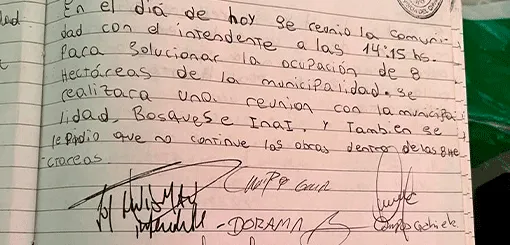 En el día de hoy se reunio la comuni
dad con el intendente a las 14:15 hs.
Para solucionar la ocupación de 8
Hectáreas de la municipalidad. se
realizara una reunion con la municipa
lidad, Bosques e Inai. y Tambien se
le pidio que no continue las obras dentro de las 8 He
ctareas
intendente
DORAMA